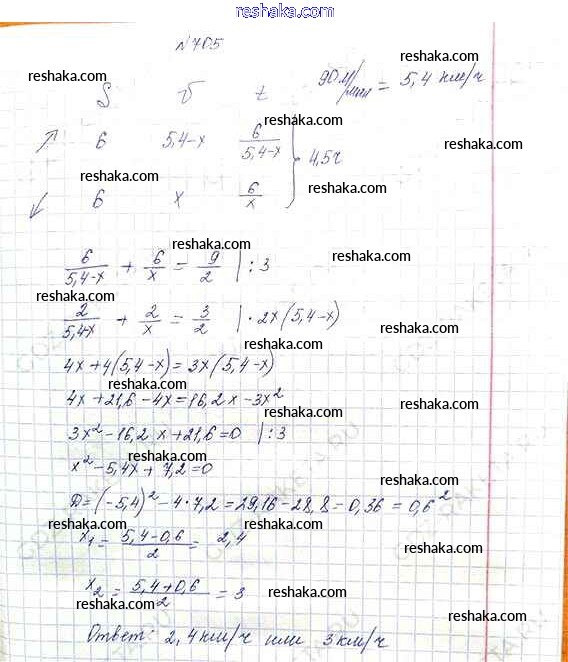 reshaka.com
N705
reshaka.com reshaka.com
S v t 90 м/мин = 5,4 км/ч
reshaka.com reshaka.com
↗ 6 5,4-x 6/(5,4-x) } 4,5ч
reshaka.com reshaka.com
↙ 6 x 6/x
reshaka.com
6/(5,4-x) + 6/x = 9/2 | : 3
reshaka.com reshaka.com
2/(5,4-x) + 2/x = 3/2 | · 2x(5,4-x)
reshaka.com
4x+4(5,4-x)=3x(5,4-x)
reshaka.com
4x+21,6-4x=16,2x-3x²
reshaka.com reshaka.com
3x²-16,2x+21,6=0 | :3
reshaka.com
x²-5,4x+7,2=0
reshaka.com
D=(-5,4)²-4·7,2=29,16-28,8=0,36=0,6²
reshaka.com reshaka.com
x₁= (5,4-0,6)/2 = 2,4
reshaka.com
x₂= (5,4+0,6)/2 = 3
reshaka.com reshaka.com
reshaka.com
Ответ: 2,4 км/ч или 3 км/ч
reshaka.com